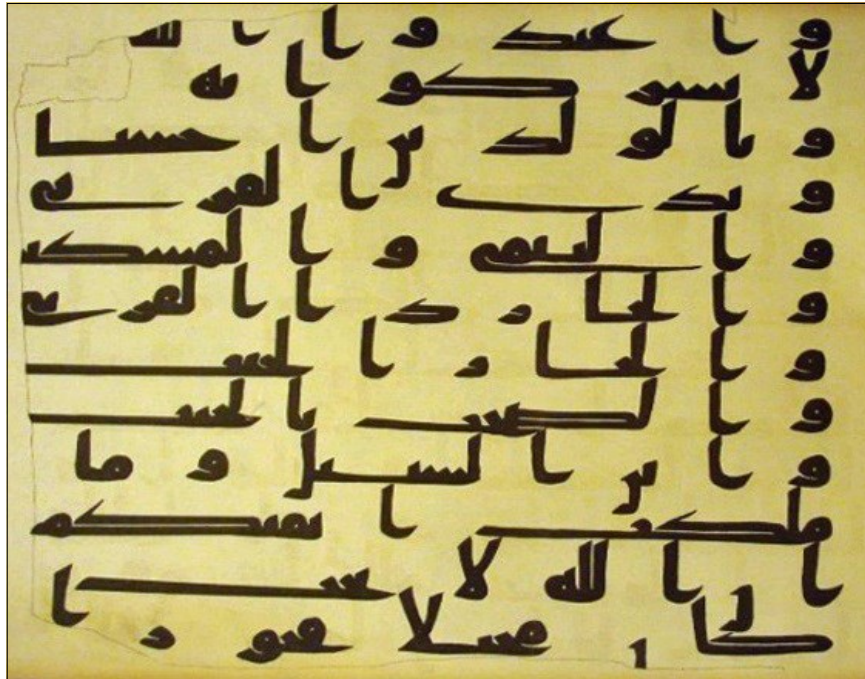 واعبدوا الله
لا تشركوا به
وبالولدين احسنا
وبذي القربى
واليتمى والمسكين
والجار ذي القربى
والجار الجنب
والصحب بالجنب
وابن السبيل وما
ملكت ايمنكم
ان الله لا يحب
كان مختلا فخورا